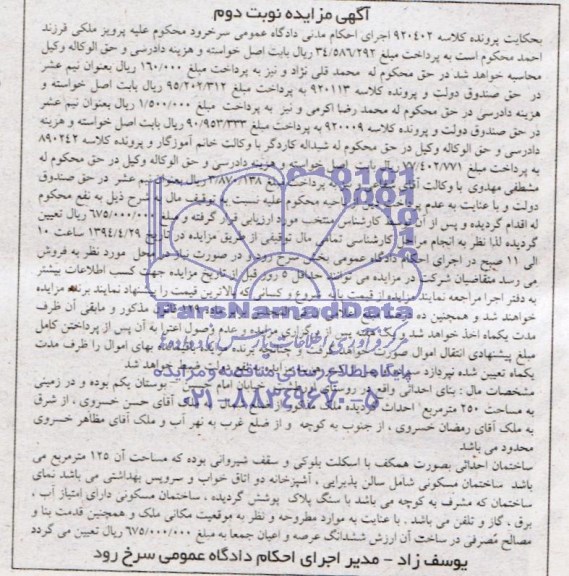 آگهی مزایده نوبت دوم
بحکایت پرونده کلاسه ۹۲۰۴۰۲ اجرای احکام مدنی دادگاه عمومی سرخرود محکوم علیه پرویز ملکی فرزند
احمد محکوم است به پرداخت مبلغ ۳۴/۵۸۶/۲۹۲ ریال بابت اصل خواسته و هزینه دادرسی و حق الوکاله وکیل
محاسبه خواهد شد در حق محکوم له محمد قلی نژاد و نیز به پرداخت مبلغ ۱۶۰/۰۰۰ ریال بعنوان نیم عشر
در حق صندوق دولت و پرونده کلاسه ۹۲۰۱۱۳ به پرداخت مبلغ ۹۵/۲۰۲/۳۱۲ ریال بابت اصل خواسته و
هزینه دادرسی در حق محکوم له محمد رضا اکومی و نیز به پرداخت مبلغ ۱/۵۰۰/۰۰۰ ریال بعنوان نیم عشر
در حق صندوق دولت و پرونده کلاسه ۹۲۰۰۰۹ به پرداخت مبلغ ۹۰/۹۵۳/۳۳۳ ریال بابت اصل خواسته و هزینه
دادرسی و حق الوکاله وکیل در حق محکوم له شیداله کاردگر با وکالت خانم آموزگار و پرونده کلاسه ۸۹۰۲۴۲
به پرداخت مبلغ ۷۷/۴۰۲/۷۷۱ ریال بابت اصل خواسته و هزینه دادرسی و حق الوکاله وکیل در حق محکوم له
مشطفی مهدوی با وکالت آقای به پرداخت مبلغ ۳/۸۷۰/۱۳۸ ریال بعنوان نیم عشر در حق صندوق
دولت و با عنایت به عدم محکوم علیه نسبت به توقیف مال به شرح ذیل به نفع محکوم
له اقدام گردیده و پس از آن کارشناس منتخب مورد ارزیابی قرار گرفته و مبلغ ۶۷۵/۰۰۰/۰۰۰ ریال تعیین
گردیده لذا نظر به انجام مراحل کارشناسی تمامی مال توقیفی از طریق مزایده در تاریخ ۱۳۹۴/۴/۲۹ ساعت ۱۰
الی ۱۱ صبح در اجرای احکام دادگاه عمومی بخش سرخ رود و در صورت محل مورد نظر به فروش
می رسد متقاضیان شرکت در مزایده می توانند حداقل ۵ روز قبل از تاریخ مزایده جهت کسب اطلاعات بیشتر
به دفتر اجرا مراجعه نمایند مزایده از قیمت پایه شروع و کسانی که بالاترین قیمت را پیشنهاد نمایند برنده مزایده
خواهند شد و همچنین مذکور و مابقی آن ظرف
مدت یکماه اخذ خواهد شد پس از برگزاری مزایده و عدم وصول اعتراض به آن پس از پرداختن کامل
مبلغ پیشنهادی انتقال اموال صورت خواهد گرفت و چنانچه برنده مزایده بهای اموال را ظرف مدت
یکماه تعیین شده نپردازد خواهد شد
مشخصات مال : بنای احداثی واقع در روستای خیابان امام خمینی بوستان یکم بوده و در زمینی
به مساحت ۲۵۰ مترمربع احداث گردیده ملک آقای حسن خسروی ، از شرق
به ملک آقای رمضان خسروی ، از جنوب به کوچه و از ضلع غرب به نهر آب و ملک آقای مظاهر خسروی
محدود می باشد
ساختمان احداثی بصورت همکف با اسکلت بلوکی و سقف شیروانی بوده که مساحت آن ۱۲۵ مترمربع می
باشد ساختمان مسکونی شامل سالن پذیرایی ، آشپزخانه دو اتاق خواب و سرویس بهداشتی می باشد نمای
ساختمان که مشرف به کوچه می باشد با سنگ پلاک پوشش گردیده ، ساختمان مسکونی دارای امتیاز آب ،
برق ، گاز و تلفن می باشد . با عنایت به موارد مطروحه و نظر به موقعیت مکانی ملک و همچنین قدمت بنا و
مصالح مصرفی در ساخت آن ارزش ششدانگ عرصه و اعیان جمعا به مبلغ ۶۷۵/۰۰۰/۰۰۰ ریال تعیین می گردد
یوسف زاد - مدیر اجرای احکام دادگاه عمومی سرخ رود
ParsNamadData
پایگاه اطلاع رسانی مناقصه و مزایده
۰۲۱-۸۸۳۴۹۶۷۰-۵